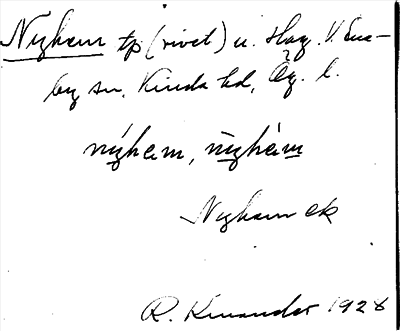 Nyhem tp (rivet) u. Hag. V. Ene-
by sn, Kinda hd, Ög. l.
nýhem, nyhém
Nyhem ek
R. Kinander 1928